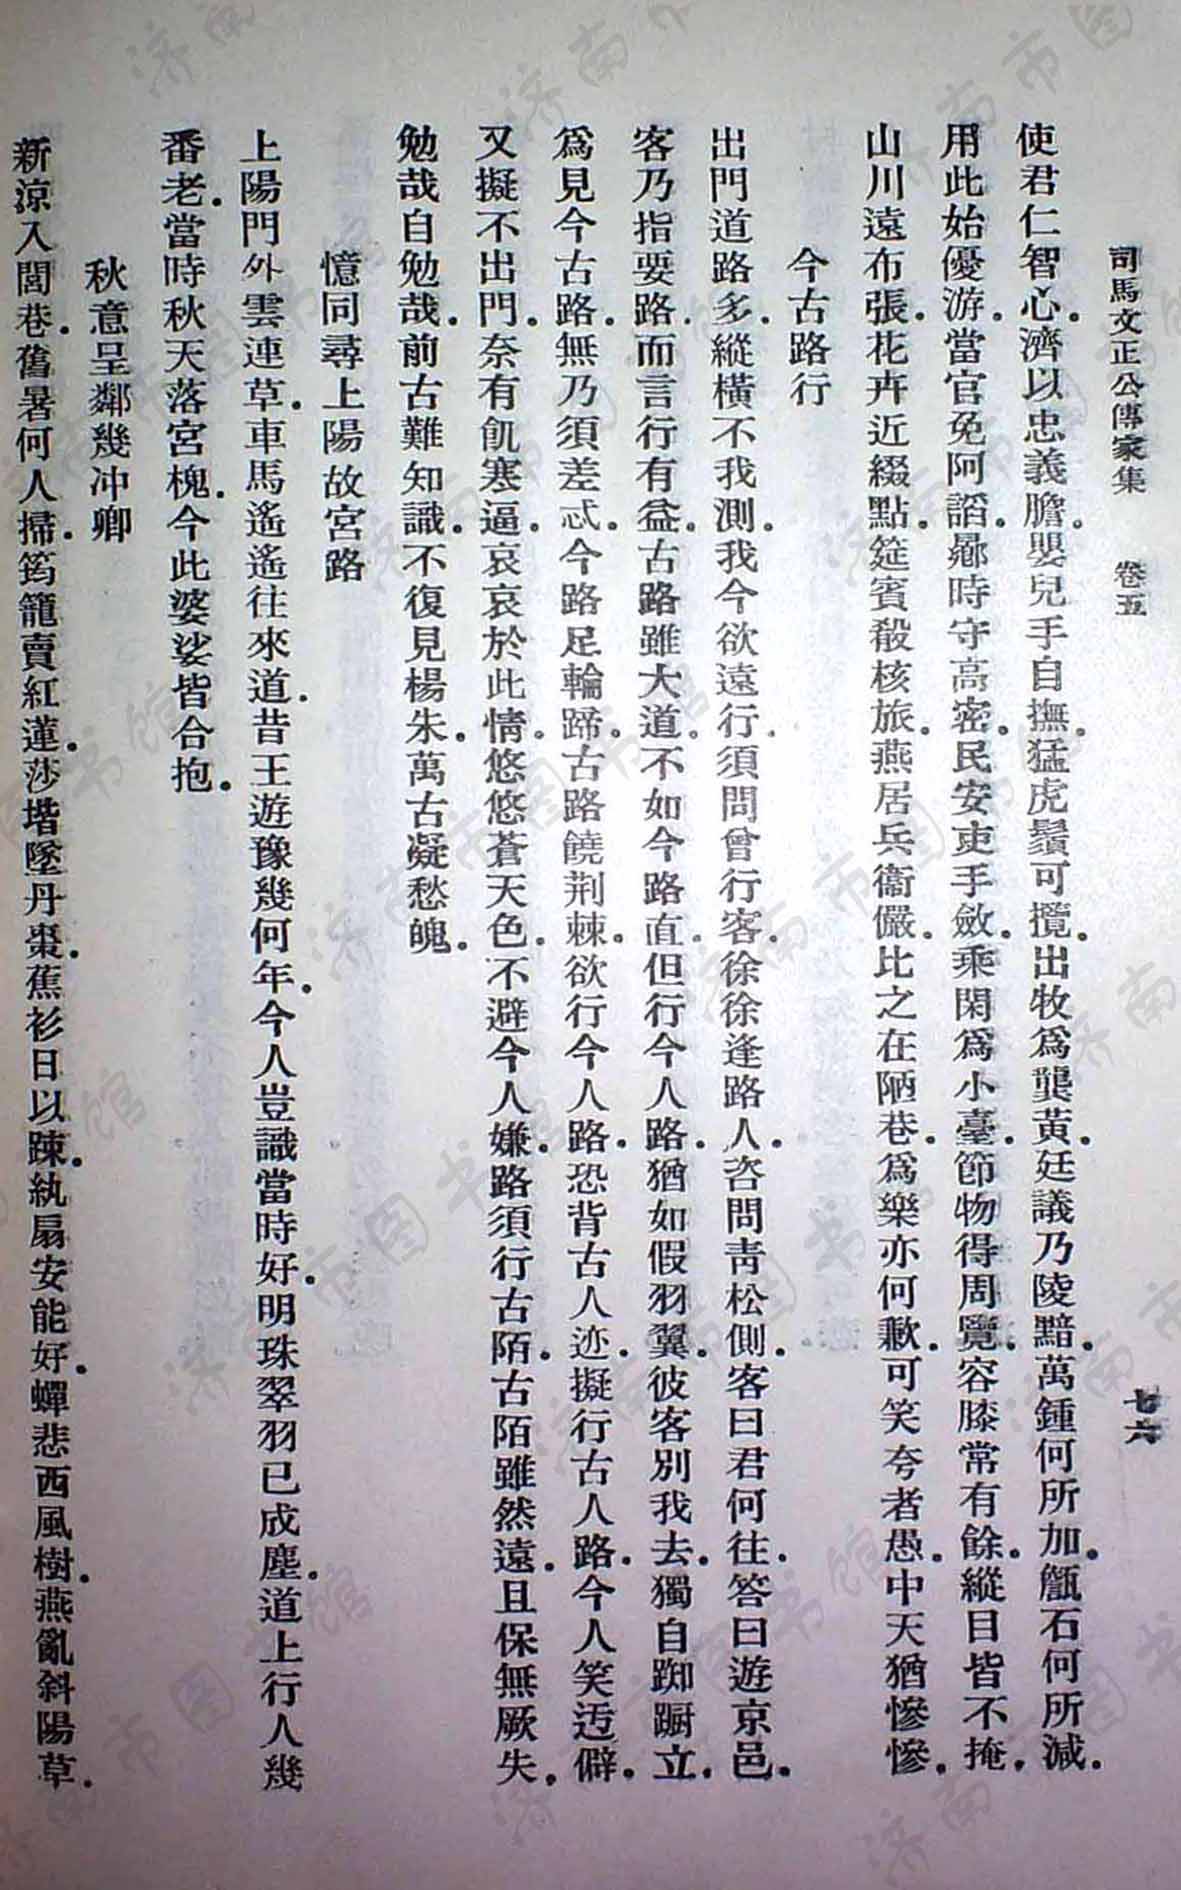 司馬文正公傳家集　卷五　七六
使君仁智心．濟以忠義膽．嬰兒手自撫．猛虎鬚可攬．出牧爲龔黃．廷議乃陵黯．萬鍾何所加．甔石何所減．
用此始優游．當官免阿諂．曏時守高密．民安吏手斂．乘閑爲小臺．節物得周覽．容膝常有餘．縱目皆不掩．
山川遠布張．花卉近綴點．筵賓殽核旅．燕居兵衞儼．比之在陋巷．爲樂亦何歉．可笑夸者愚．中天猶慘慘．
今古路行
出門道路多．縱橫不我測．我今欲遠行．須問曾行客．徐徐逢路人．咨問靑松側．客曰君何往．答曰遊京邑．
客乃指要路．而言行有益．古路雖大道．不如今路直．但行今人路．猶如假羽翼．彼客別我去．獨自踟躕立．
爲見今古路．無乃須差忒．今路足輪蹄．古路饒荆棘．欲行今人路．恐背古人迹．擬行古人路．今人笑迃僻．
又擬不出門．奈有飢寒逼．哀哀於此情．悠悠蒼天色．不避今人嫌．路須行古陌．古陌雖然遠．且保無厥失．
勉哉自勉哉．前古難知識．不復見楊朱．萬古凝愁魄．
憶同尋上陽故宮路
上陽門外雲連草．車馬遙遙往來道．昔王遊豫幾何年．今人豈識當時好．明珠翠羽已成塵．道上行人幾
番老．當時秋天落宮槐．今此婆娑皆合抱．
秋意呈鄰幾冲卿
新涼入閭巷．舊暑何人掃．筠籠賣紅蓮．莎堦墜丹棗．蕉衫日以踈．紈扇安能好．蟬悲西風樹．燕亂斜陽草．
济南市图书馆